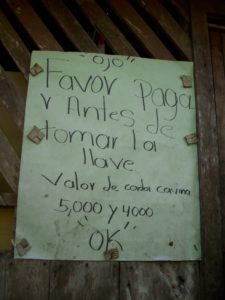 "OJO"
Favor Paga
r Antes de
tomar la
llave
Valor de cada
5,000 y 4000
"OK"